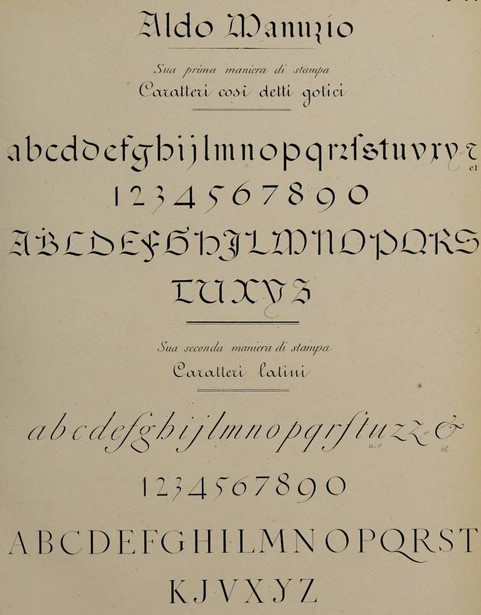 Aldo Manuzio
Sua prima maniera di stampa
Caratteri così detti gotici
abcddefghijlmnopqrꝛſstuvxyz
et
1234567890
ABCDEFGHJLMNOPQRS
TUXYZ
Sua seconda maniera di stampa
Caratteri latini
abcdefghijlmnopqrſtuzz &
u.v et
1234567890
ABCDEFGHILMNOPQRST
KJVXYZ